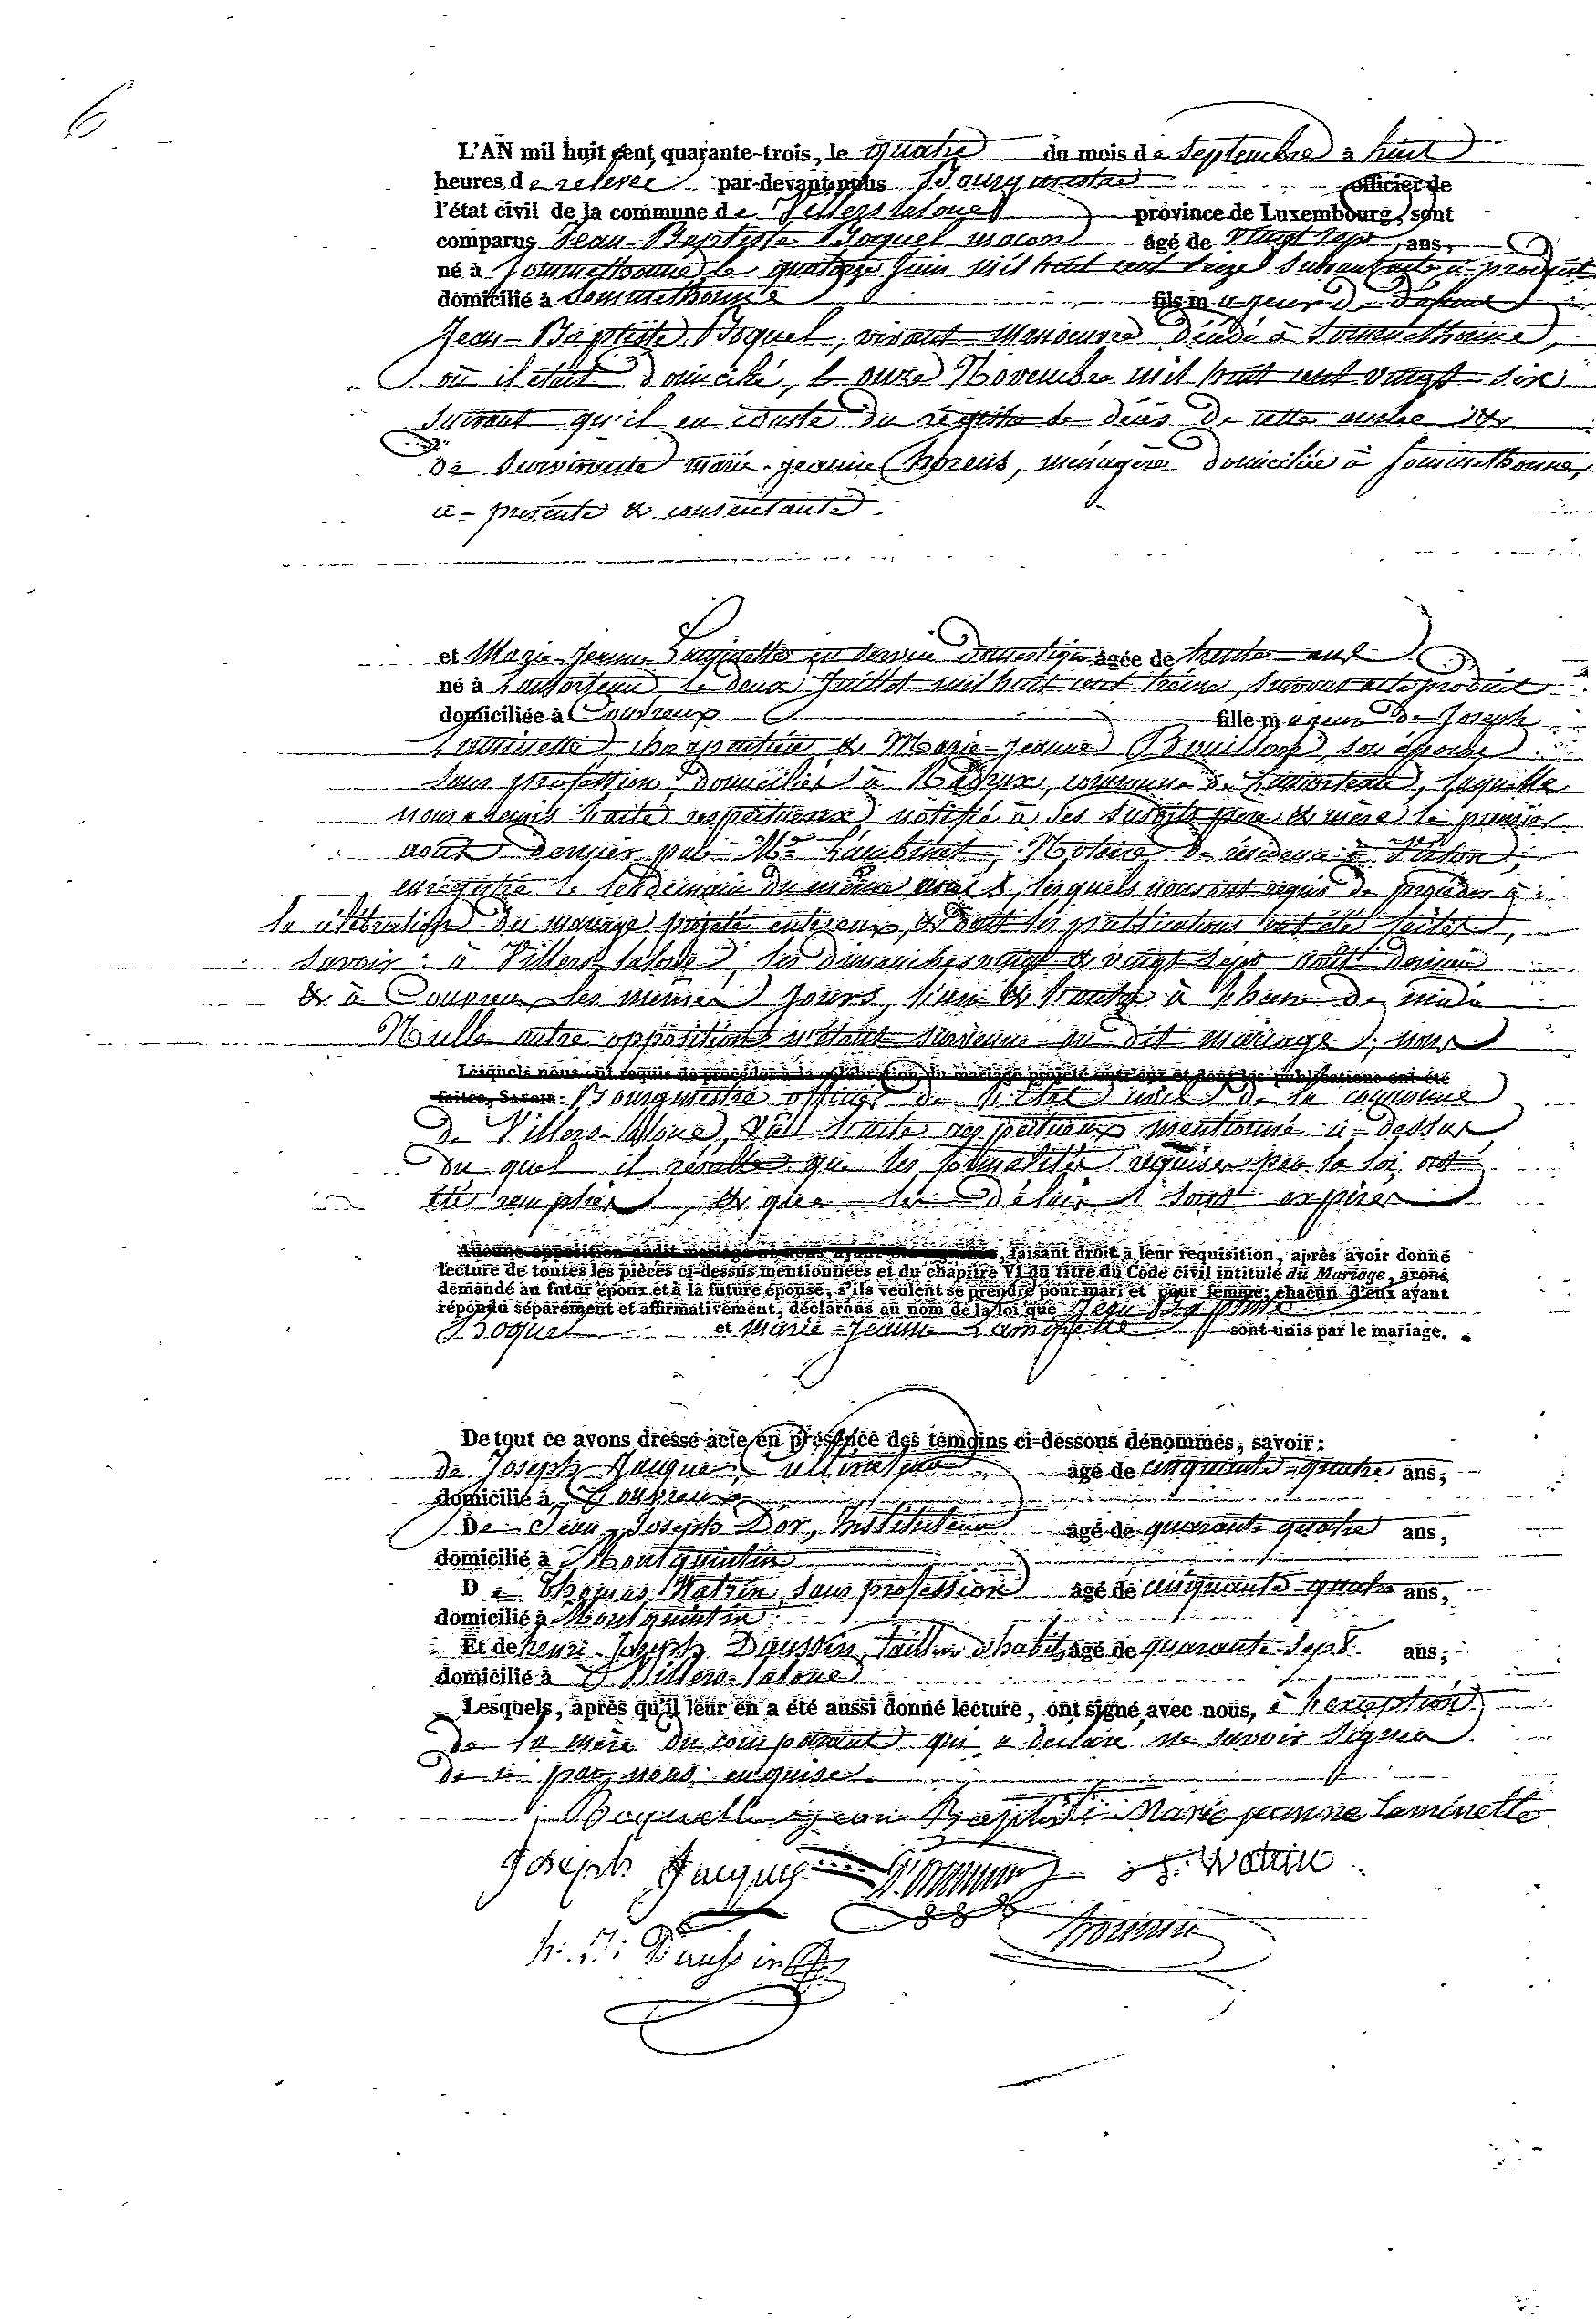 6
L'AN mil huit cent quarante-trois, le quatre du mois de Septembre à huit
heures de relevée par-devant nous Bourgmestre officier de
l'état civil de la commune de Villers laloue province de Luxembourg, sont
comparus Jean-Baptiste Boquel macon âgé de vingt sept ans,
né à Sommethonne le quatorze Juin mil huit cent seize suivant acte produit
domicilié à Sommethonne fils majeur de défunt
Jean-Baptiste Boquel, vivant manoeuvre décédé à Sommethonne,
où il était domicilié, le onze Novembre mil huit cent vingt six
suivant qu'il en conste du registre de décès de cette année &
de survivante marie-jeanne, ménagère domiciliée à Sommethonne,
ci-présente & consentante.
et Marie-Jeanne Laminette en service domestique âgée de trente ans
né à Lamorteau, le deux Juillet mil huit cent treize, suivant acte produit
domiciliée à Couvreux fille majeure de Joseph
Laminette, charpentier & Marie-Jeanne, son épouse
sans profession, domiciliés à Radrux, commune de Lamorteau, laquelle
nous a remis l'acte respectueux notifié à ses susdits père & mère le premier
août dernier par Me Lambinet, Notaire de résidence à Virton,
enregistré le lendemain du même mois &, lesquels nous ont requis de procéder à
la célébration du mariage projeté entre eux, & dont les publications ont été faites,
savoir : à Villers laloue, les dimanches vingt & vingt sept août dernier
& à Couvreux les mêmes jours, l'un & l'autre à l'heure de midi
Nulle autre opposition n'étant survenue au dit mariage, nous
Lesquels nous ont requis de procéder à la célébration du mariage projeté entr'eux et dont les publications ont été
faites, Savoir: Bourgmestre officier de l'état civil de la commune
de Villers-laloue, vu l'acte respectueux mentionné ci-dessus
du quel il résulte que les formalités requises par la loi ont
été remplies, & que les délais sont expirés
Aucune opposition audit mariage ne nous ayant été signifiée, faisant droit à leur requisition, après avoir donné
lecture de toutes les pièces ci-dessus mentionnées et du chapitre VI du titre du Code civil intitulé du Mariage, avons
demandé au futur époux et à la future épouse, s'ils veulent se prendre pour mari et pour femme; chacun d'eux ayant
répondu séparément et affirmativement, déclarons au nom de la loi que Jean Baptiste
Boquel et Marie-Jeanne Laminette sont unis par le mariage.
De tout ce avons dressé acte en présence des témoins ci-dessous dénommés, savoir:
de Joseph Jacques Cultivateur âgé de cinquante-quatre ans,
domicilié à Couvreux
De Jean Joseph Dor, Instituteur âgé de quarante quatre ans,
domicilié à Montquintin
De Thomas Watrin, sans profession âgé de cinquante quatre ans,
domicilié à Montquintin
Et de henri Joseph Daussin, tailleur d'habits, âgé de quarante-sept ans,
domicilié à Villers-laloue
Lesquels, après qu'il leur en a été aussi donné lecture, ont signé avec nous, à l'exception
de la mère du comparant qui a déclaré ne savoir signer
de ce par nous enquise.
Boquelle jean Baptiste Marie jeanne Laminette
Joseph Jacques Watrin
h. J. Daussin